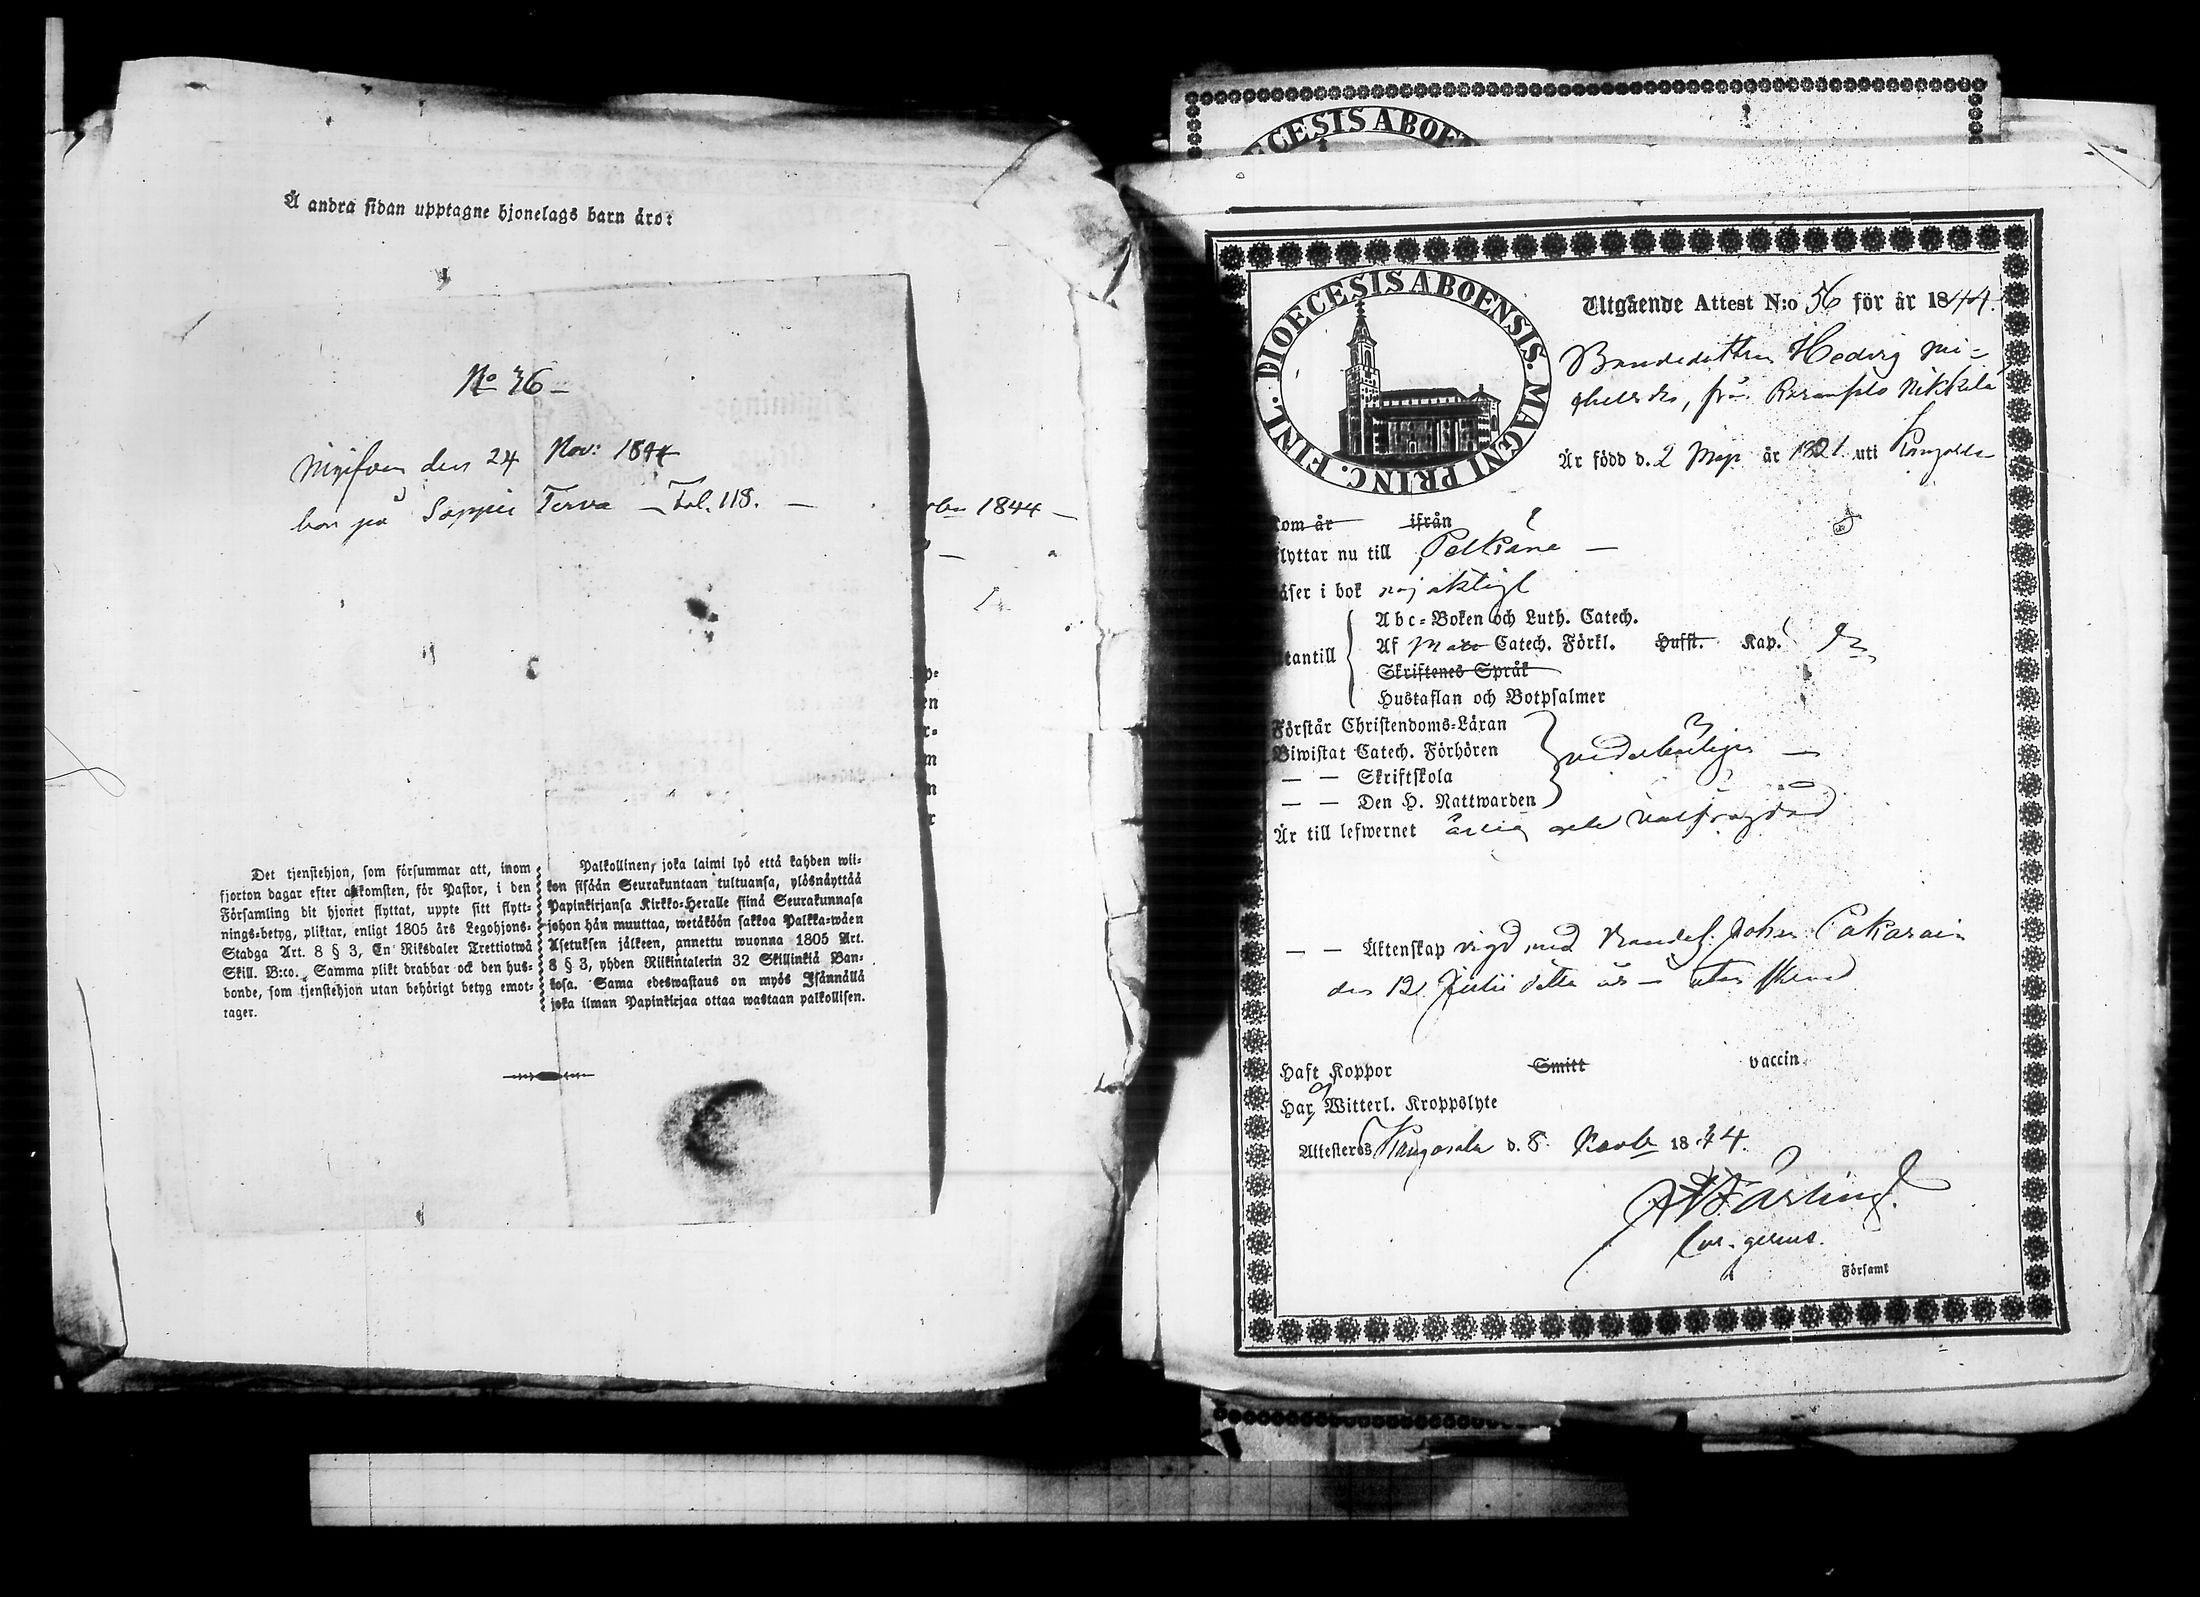 Å andra sidan upptagne hjonelags barn äro:
No 36 –
den 24 Nov: 1844
bor på Soppis Terva – Fol. 118. –
1844 –
Det tjenstehjon, som försummar att, inom
fjorton dagar efter ankomsten, för Pastor, i den
Församling dit hjonet flyttat, uppte sitt flytt-
nings-betyg, pliktar, enligt 1805 års Legohjons-
Stadga Art. 8 § 3, En Riksdaler Trettiotwå
Skill. B:co. Samma plikt drabbar ock den hus-
bonde, som tjenstehjon utan behörigt betyg emot-
tager.
Palkollinen, joka laimi lyö että kahden wii-
kon sisään Seurakuntaan tultuansa, ylösnäyttää
Papinkirjansa Kirkko-Heralle siinä Seurakunnasa
johon hän muuttaa, wetäköön sakkoa Palkka-wäen
Asetuksen jälkeen, annettu wuonna 1805 Art.
8 § 3, yhden Riikintalerin 32 Skillinkiä Ban-
kosa. Sama edeswastaus on myös Isännällä
joka ilman Papinkirjaa ottaa wastaan palkollisen.
ECESIS ABOE
DIOECESIS ABOENSIS. MAGNI PRINC. FINL.
Utgående Attest N:o 56 för år 1844.
Bondedottren Hedvig Mi-
chelsdr, från Nikkilä
Är född d. 2 Maji år 1821 uti Kangasala
kom år ifrån
flyttar nu till Pelkäne –
läser i bok nöjaktigt
utantill
Abc-Boken och Luth. Catech.
Af Catech. Förkl. Hufst. Kap.
Skriftenes Språk
Hustaflan och Botpsalmer
Förstår Christendoms-Läran
Biwistat Catech. Förhören
– – Skriftskola
– – Den H. Nattwarden
vederbörligen –
Är till lefwernet ärlig och välfrägdad
– – Äktenskap vigd med Johan
den 12 Julii detta år –
Haft Koppor Smitt vaccin.
Har ej Witterl. Kroppslyte
Attesteras Kangasala d. 8 Novbr 1844.
Färling.
Cur. gerens.
Församl